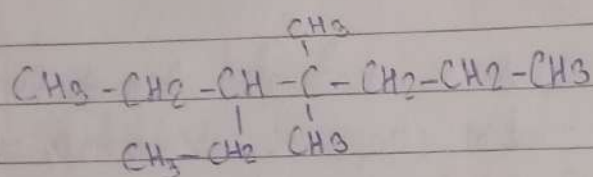 CH3
CH3-CH2-CH-C-CH2-CH2-CH3
CH3-CH2 CH3